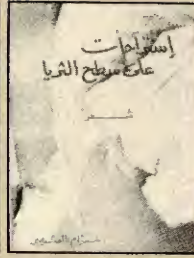 إستراحات
على سطح الثريا
شعر